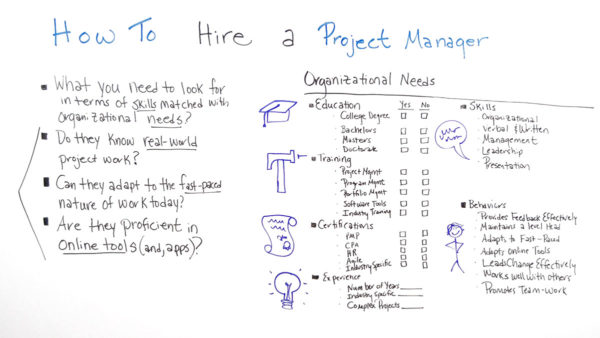 How To Hire a Project Manager
What you need to look for
in terms of skills matched with
organizational needs?
Do they know real-world
project work?
Can they adapt to the fast-paced
nature of work today?
Are they proficient in
Online tools (and, apps)?
Organizational Needs
Education Yes No
College Degree
Bachelors
Masters
Doctorate
Training
Project Mgmt
Program Mgmt
Portfolio Mgmt
Software Tools
Industry Training
Certifications
PMP
CPA
HR
Agile
Industry Specific
Experience
Number of Years
Industry Specific
Complex Projects
Skills
Organizational
Verbal & Written
Management
Leadership
Presentation
Behaviors
Provides Feedback Effectively
Maintains a level Head
Adapts to Fast-Paced
Adapts Online Tools
Leads Change Effectively
Works well with others
Promotes Team-Work